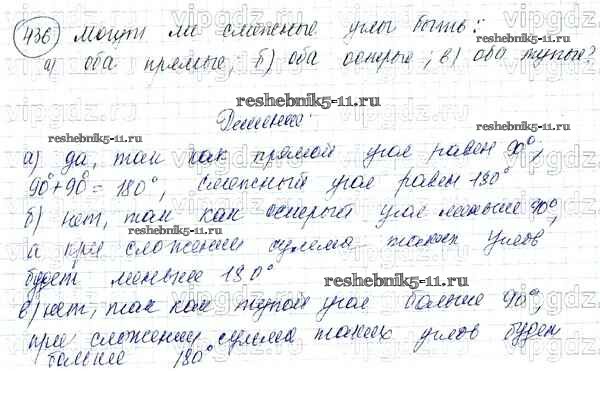 436) Могут ли смежные углы быть:
а) оба прямые; б) оба острые; в) оба тупые?
reshebnik5-11.ru
Решение:
reshebnik5-11.ru
а) да, так как прямой угол равен 90°,
90°+90°=180°, смежный угол равен 180°
б) нет, так как острый угол меньше 90°,
а при сложении сумма таких углов
будет меньше 180°
reshebnik5-11.ru
в) нет, так как тупой угол больше 90°,
при сложении сумма таких углов будет
больше 180°
reshebnik5-11.ru
vipgdz